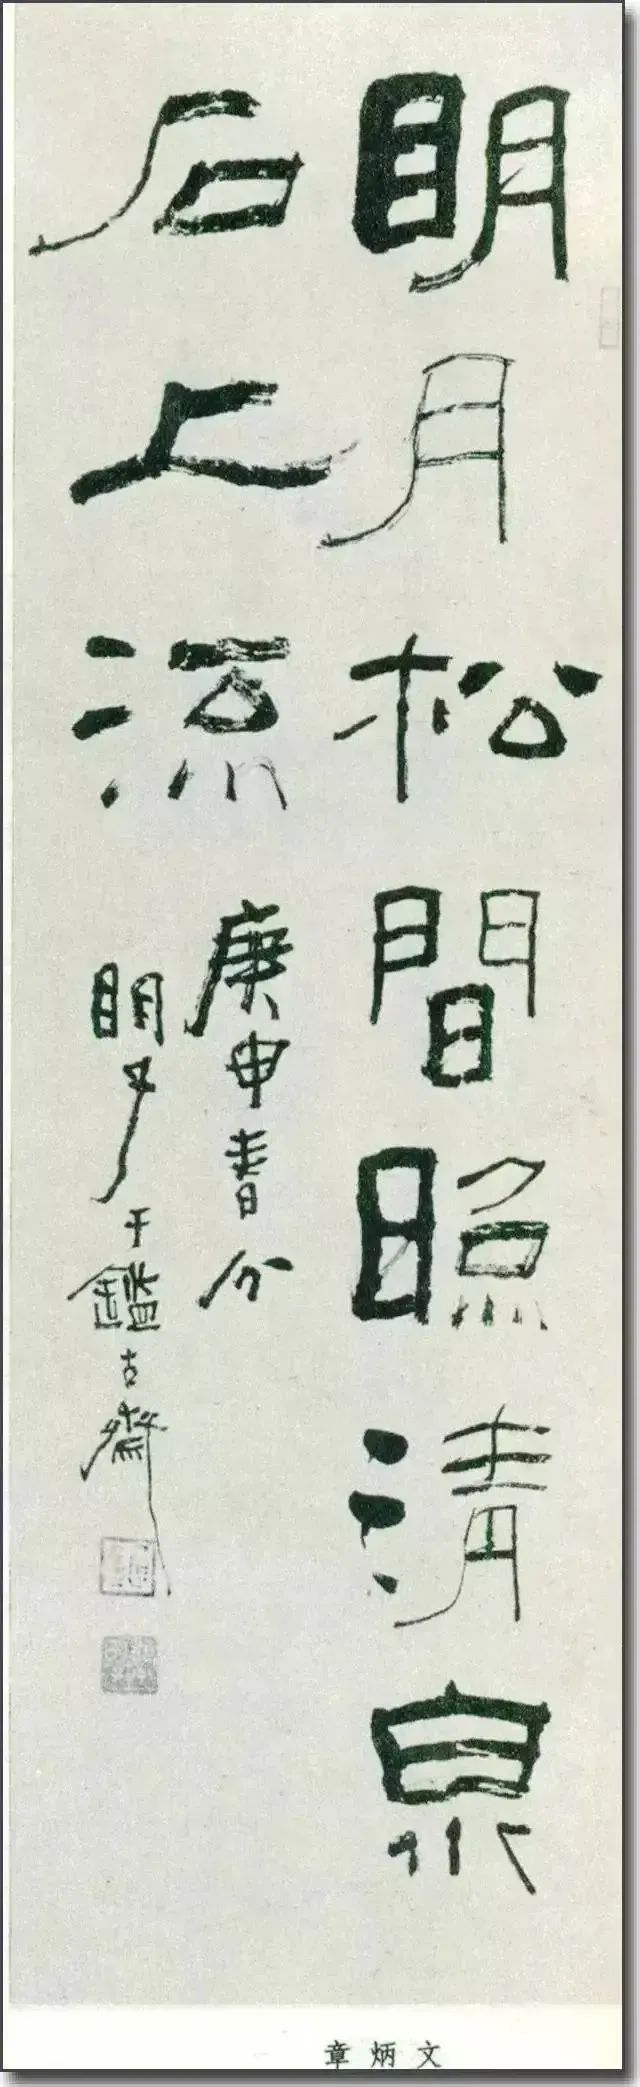 明月松間照清泉
石上流
庚申春分
明于鑑古齋
章炳文